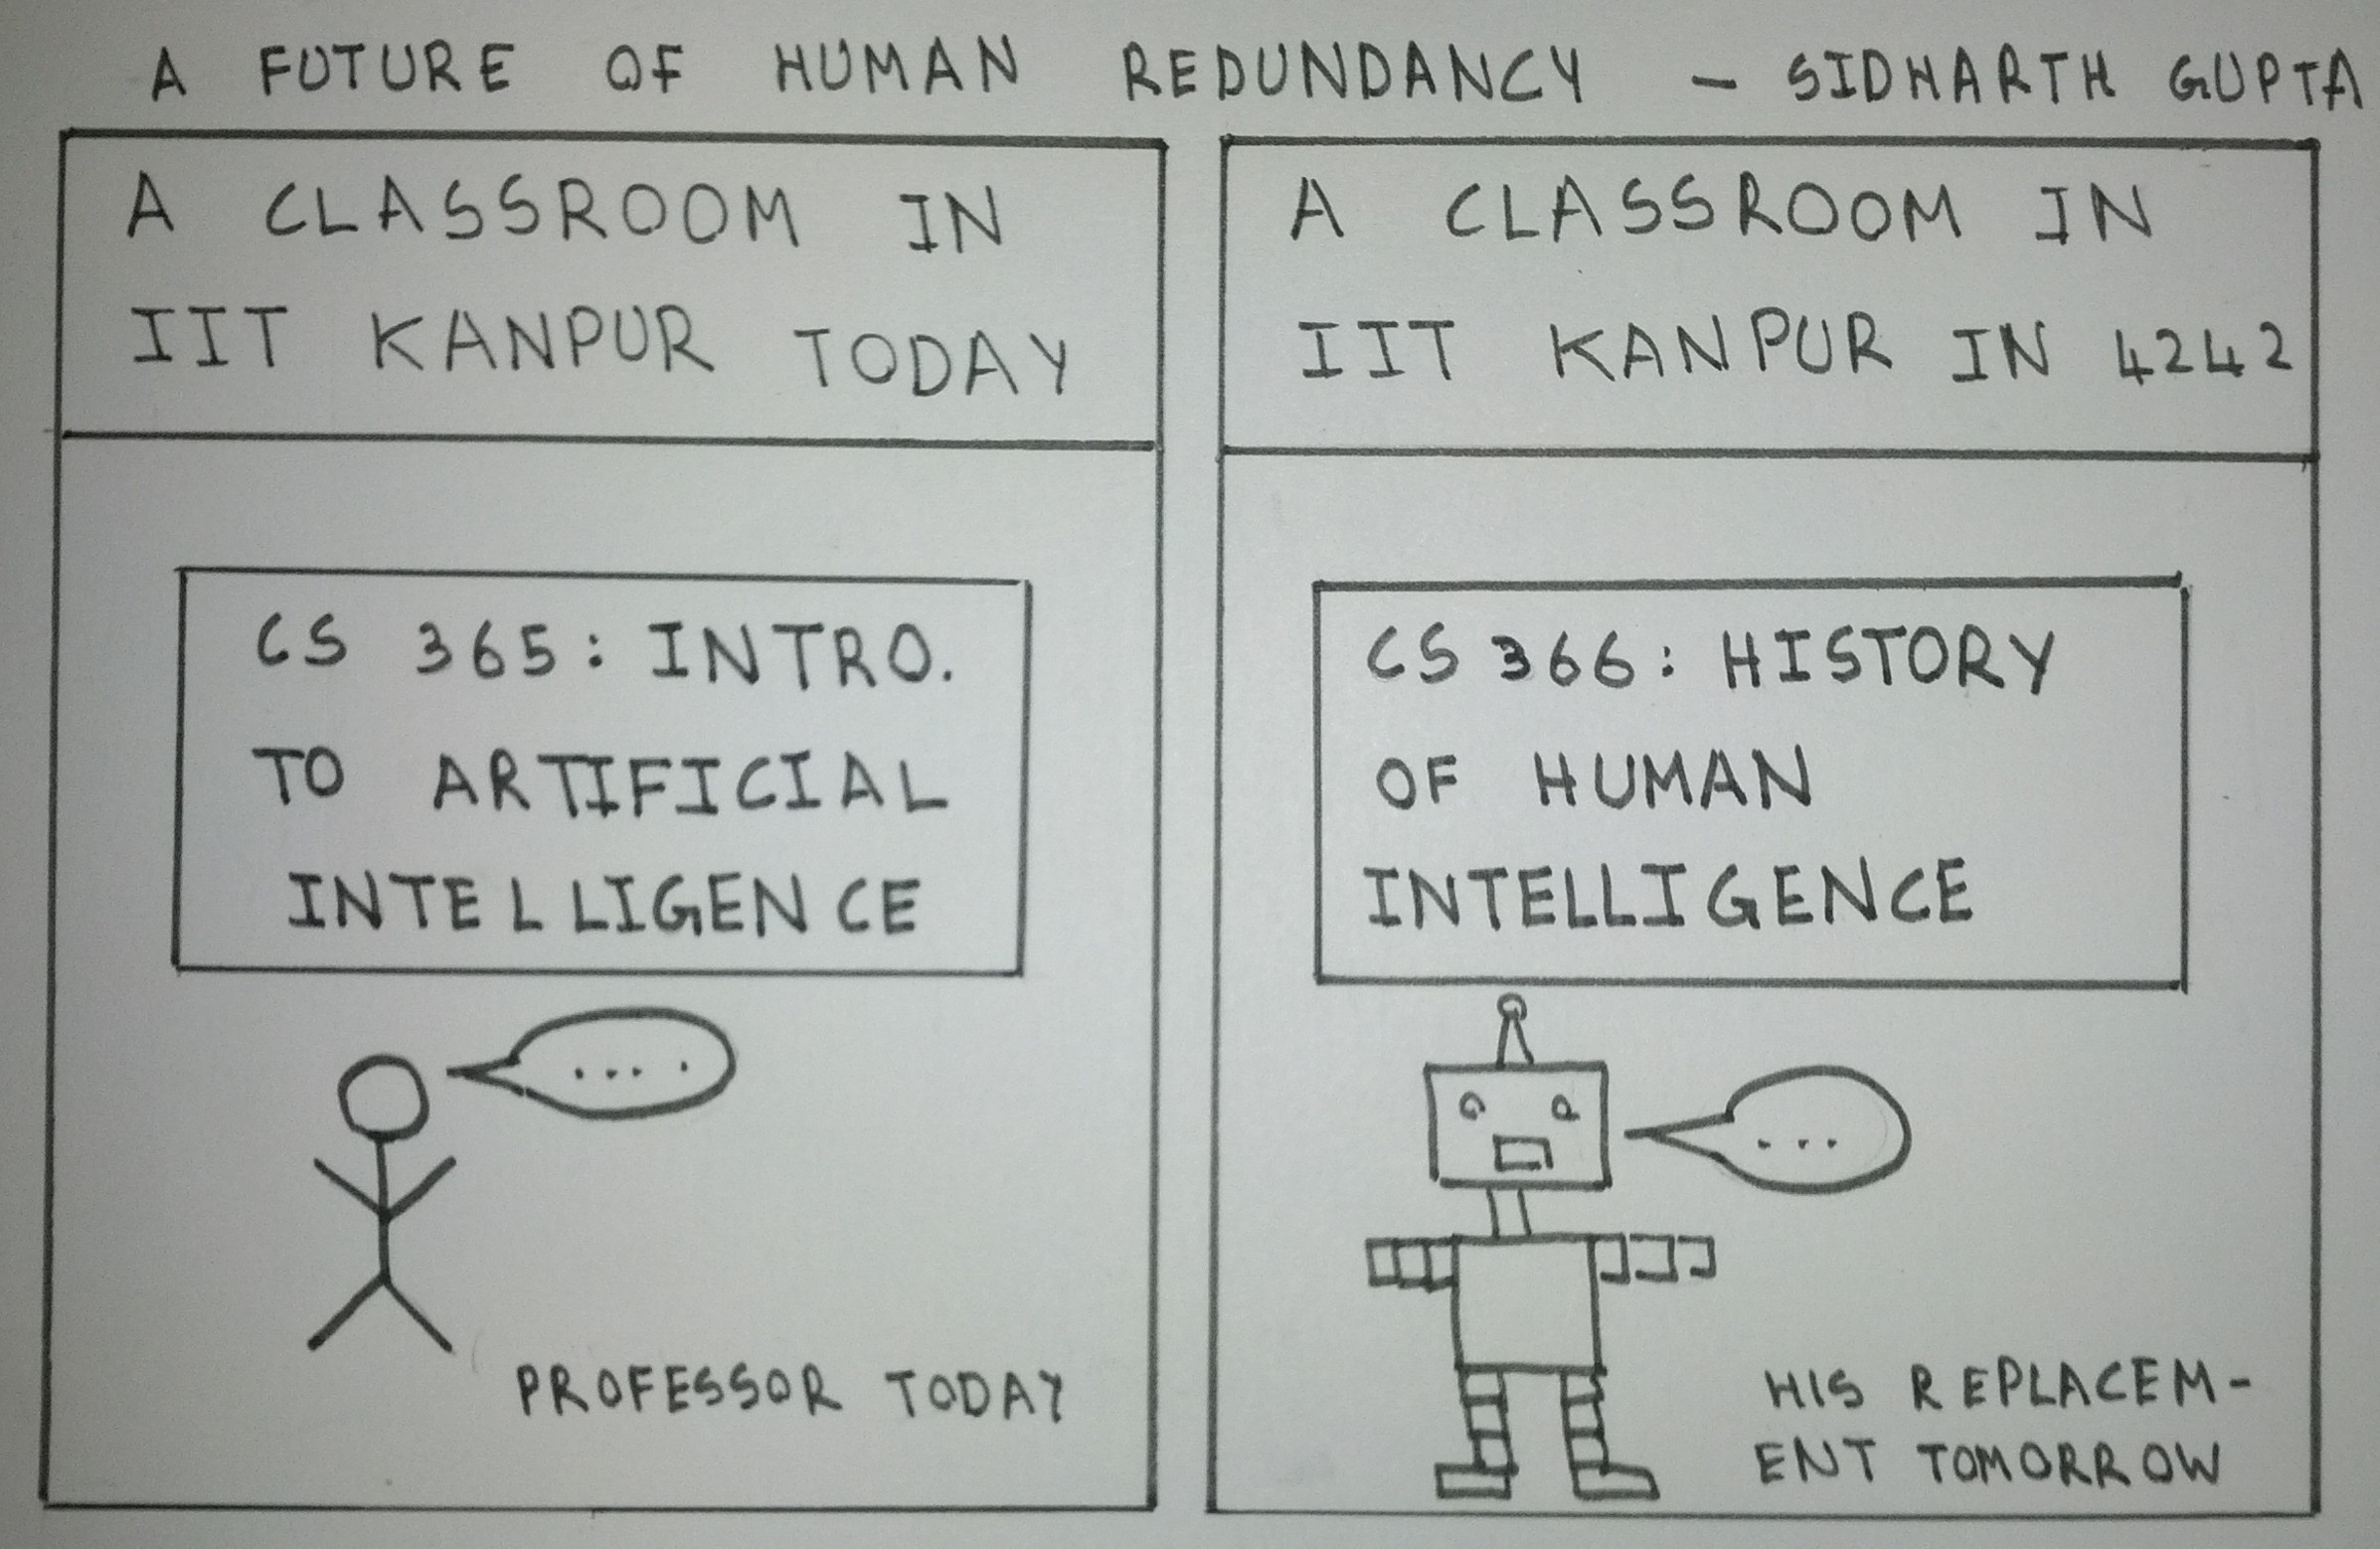 A FUTURE OF HUMAN REDUNDANCY - SIDHARTH GUPTA
A CLASSROOM IN
IIT KANPUR TODAY
CS 365: INTRO.
TO ARTIFICIAL
INTELLIGENCE
....
PROFESSOR TODAY
A CLASSROOM IN
IIT KANPUR IN 4242
CS 366: HISTORY
OF HUMAN
INTELLIGENCE
...
HIS REPLACEM-
ENT TOMORROW